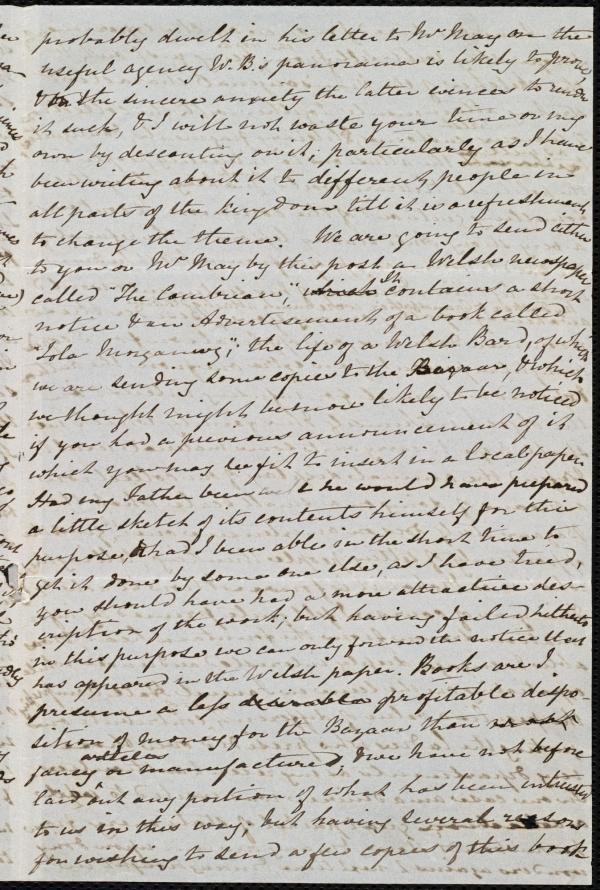 probably dwelt in his letter to Mr May on the
useful agency W. B's panorama is likely to prove,
& on the sincere anxiety the latter evinces to render
it such, & I will not waste your time or my
own by descanting on it; particularly as I have
been writing about it to different people in
all parts of the kingdom till it is a refreshment
to change the theme. We are going to send either
to you or Mr May by this post a Welsh newspaper
called "The Cambrian", which contains a short
notice & an Advertisement of a book called
"Iolo Morganwg"; the life of a Welsh Bard, of which
we are sending some copies to the Bazaar, & which
we thought might be more likely to be noticed
if you had a previous announcement of it
which you may see fit to insert in a local paper.
Had my Father been well he would have prepared
a little sketch of its contents himself for this
purpose, & had I been able in the short time to
get it done by some one else, as I have tried,
you should have had a more attractive des-
cription of the work; but having failed hitherto
in this purpose we can only forward the notice that
has appeared in the Welsh paper. Books are I
presume a less desirable profitable dispo-
sition of money for the Bazaar than
fancy articles or manufactured, & we have not before
laid out any portion of what has been intrusted
to us in this way; but having several reasons
for wishing to send a few copies of this book